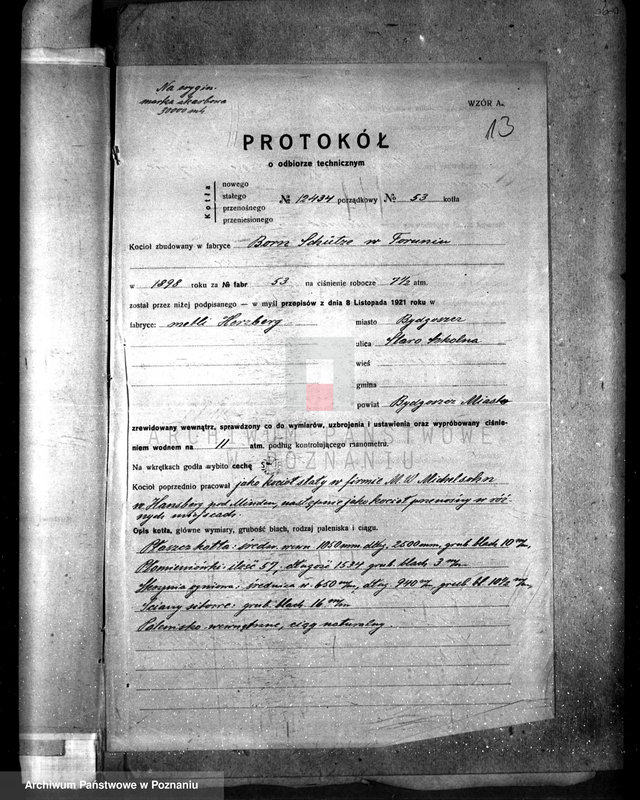 Na orygin.
marka skarbowa
30000 mk
WZÓR A.
13
PROTOKÓŁ
o odbiorze technicznym
Kotła
nowego
stałego
przenośnego
przeniesionego
№ 12434 porządkowy № 53 kotła
Kocioł zbudowany w fabryce Born Schütze w Toruniu
w 1898 roku za № fabr 53 na ciśnienie robocze 7½ atm.
został przez niżej podpisanego — w myśl przepisów z dnia 8 Listopada 1921 roku w
fabryce: mebli Herzberg miasto Bydgoszcz
ulica Staro Szkolna
wieś
gmina
powiat Bydgoszcz Miasto
zrewidowany wewnątrz, sprawdzony co do wymiarów, uzbrojenia i ustawienia oraz wypróbowany ciśnie-
niem wodnem na 11 atm. podług kontrolującego manometru.
Na wkrętkach godła wybito cechę
Kocioł poprzednio pracował jako kocioł stały w firmie M. W. Michelsohn
w Hansberg pod Minden, następnie jako kocioł przenośny w róż-
nych miejscach.
Opis kotła, główne wymiary, grubość blach, rodzaj paleniska i ciągu.
Płaszcz kotła: średn. wewn 1050 mm, dług. 2500 mm, grub blach 10 m/m,
Płomieniówki ilość 57, długość 1584 grub. blach 3 m/m.
Skrzynia ogniowa: średnica w. 650 m/m, dług 940 m/m, grub bl 10½ m/m,
Ściany sitowe: grub. blach 16 m/m
Palenisko wewnętrzne, ciąg naturalny
ARCHIWUM PAŃSTWOWE
W POZNANIU
Archiwum Państwowe w Poznaniu